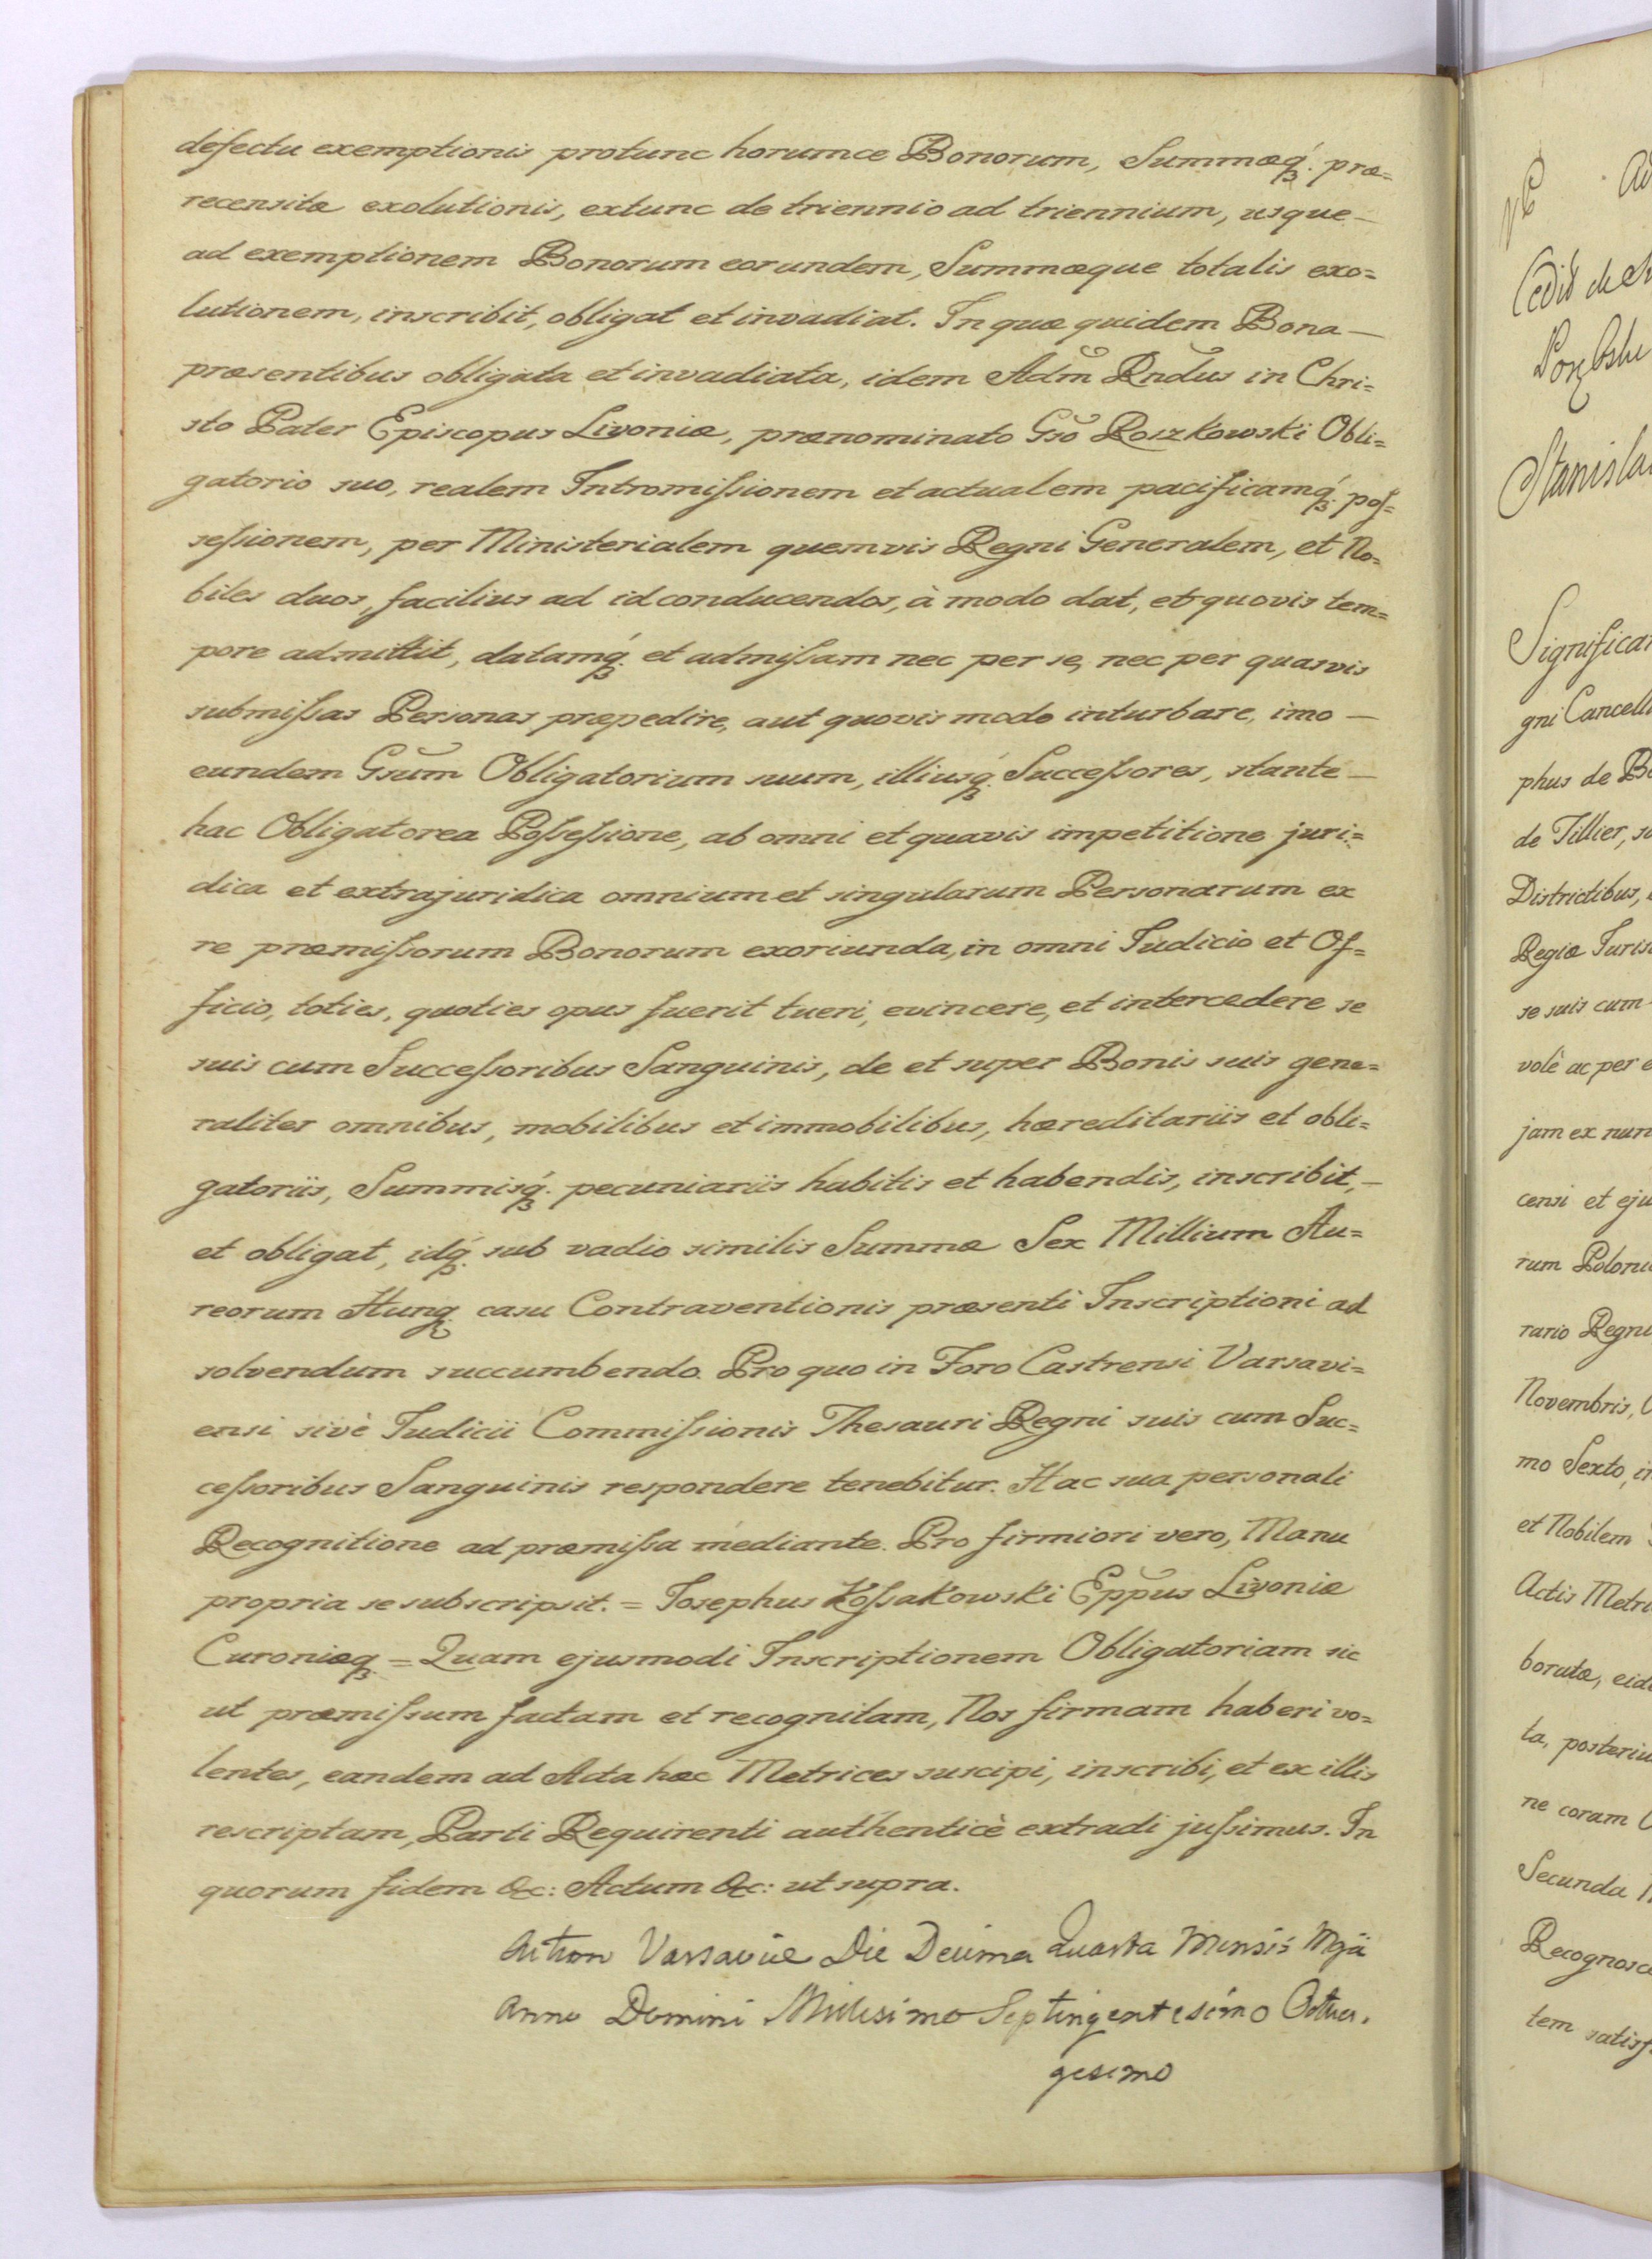 defectu exemptionis protunc horumce Bonorum, Summæq́ꝫ. præ=
recensitæ exolutionis, extunc de triennio ad triennium, usque —
ad exemptionem Bonorum eorundem, Summæque totalis exo=
lutionem, inscribit, obligat et invadiat. In quæ quidem Bona —
præsentibus obligata et invadiata, idem Adm̃ Rndũs in Chri=
sto Pater Episcopus Livoniæ, prænominato Gsõ Roszkowski Obli=
gatorio suo, realem Intromiſsionem et actualem pacificamq́ꝫ. poſ=
seſsionem, per Ministerialem quemvis Regni Generalem, et No=
biles duos, facilius ad id conducendos, à modo dat, et quovis tem=
pore admittit, datamq́ꝫ. et admiſsam nec per se, nec per quasvis
submiſsas Personas præpedire, aut quovis modo inturbare, imo —
eundem Gsũm Obligatorium suum, illiusq́ꝫ. Succeſsores, stante —
hac Obligatorea Poſseſsione, ab omni et quavis impetitione juri=
dica et extrajuridica omnium et singularum Personarum ex
re præmiſsorum Bonorum exoriunda, in omni Judicio et Of=
ficio, toties, quoties opus fuerit tueri, evincere, et intercedere se
suis cum Succeſsoribus Sanguinis, de et super Bonis suis gene=
raliter omnibus, mobilibus et immobilibus, hæreditariis et obli=
gatoriis, Summisq́ꝫ. pecuniariis habitis et habendis, inscribit, —
et obligat, idq́ꝫ. sub vadio similis Summæ Sex Millium Au=
reorum Hung. casu Contraventionis præsenti Inscriptioni ad
solvendum succumbendo. Pro quo in Foro Castrensi Varsavi=
ensi sivè Judicii Commiſsionis Thesauri Regni suis cum Suc=
ceſsoribus Sanguinis respondere tenebitur. Hac sua personali
Recognitione ad præmiſsa mediante. Pro firmiori vero, Manu
propria se subscripsit. = Josephus Koſsakowski Epp̃us Livoniæ
Curoniæqꝫ = Quam ejusmodi Inscriptionem Obligatoriam sic
ut præmiſsum factam et recognitam, Nos firmam haberi vo=
lentes, eandem ad Acta hæc Metrices suscipi, inscribi, et ex illis
rescriptam, Parti Requirenti authenticè extradi juſsimus. In
quorum fidem &c: Actum &c: ut supra.
Actum Varsaviæ Die Decima Quarta Mensis Mqji
Anno Domini Millesimo Septingentesimo Octua.
gesimo
Significa
gni Cancell
phus de B
de Tillier, s
Districtibus,
Regiæ Juris
se suis cum
volè ac per e
jam ex nun
censi et eju
rum Poloni
rario Regni
Novembris,
mo Sexto, i
et Nobilem
Actis Metri
borutæ, eid
ta, posteriu
ne coram
Secunda
Recognosc
tem satisf